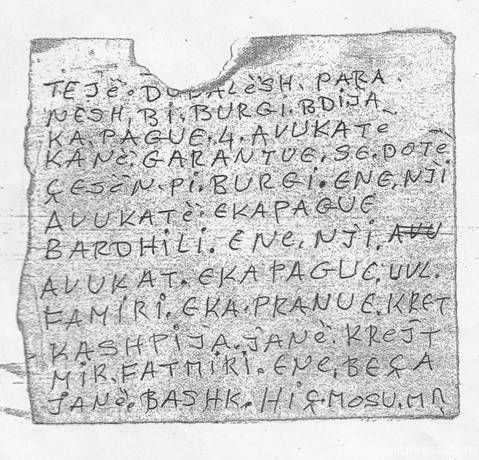 TEJÈ. DUDALÈSH. PARA.
NESH, BI. BURGI. BDIJA
KA. PAGUE. 4. AVUKATE
KANÈ. GARANTUE, SE. DOTÈ
ÇESÈN. PI. BURGI. ENE, NJI
AVUKATÈ. EKAPAGUE
BARDHILI. ENE, NJI. AVU
AVUKAT. EKA PAGUE. VVL.
FAMIRI. EKA. PRANUE. KRET
KASHPIJA. JANÈ. KREJT
MIR. FATMIRI. ENE, BEÇA
JANÈ. BASHK. HIÇ MOSU. MN